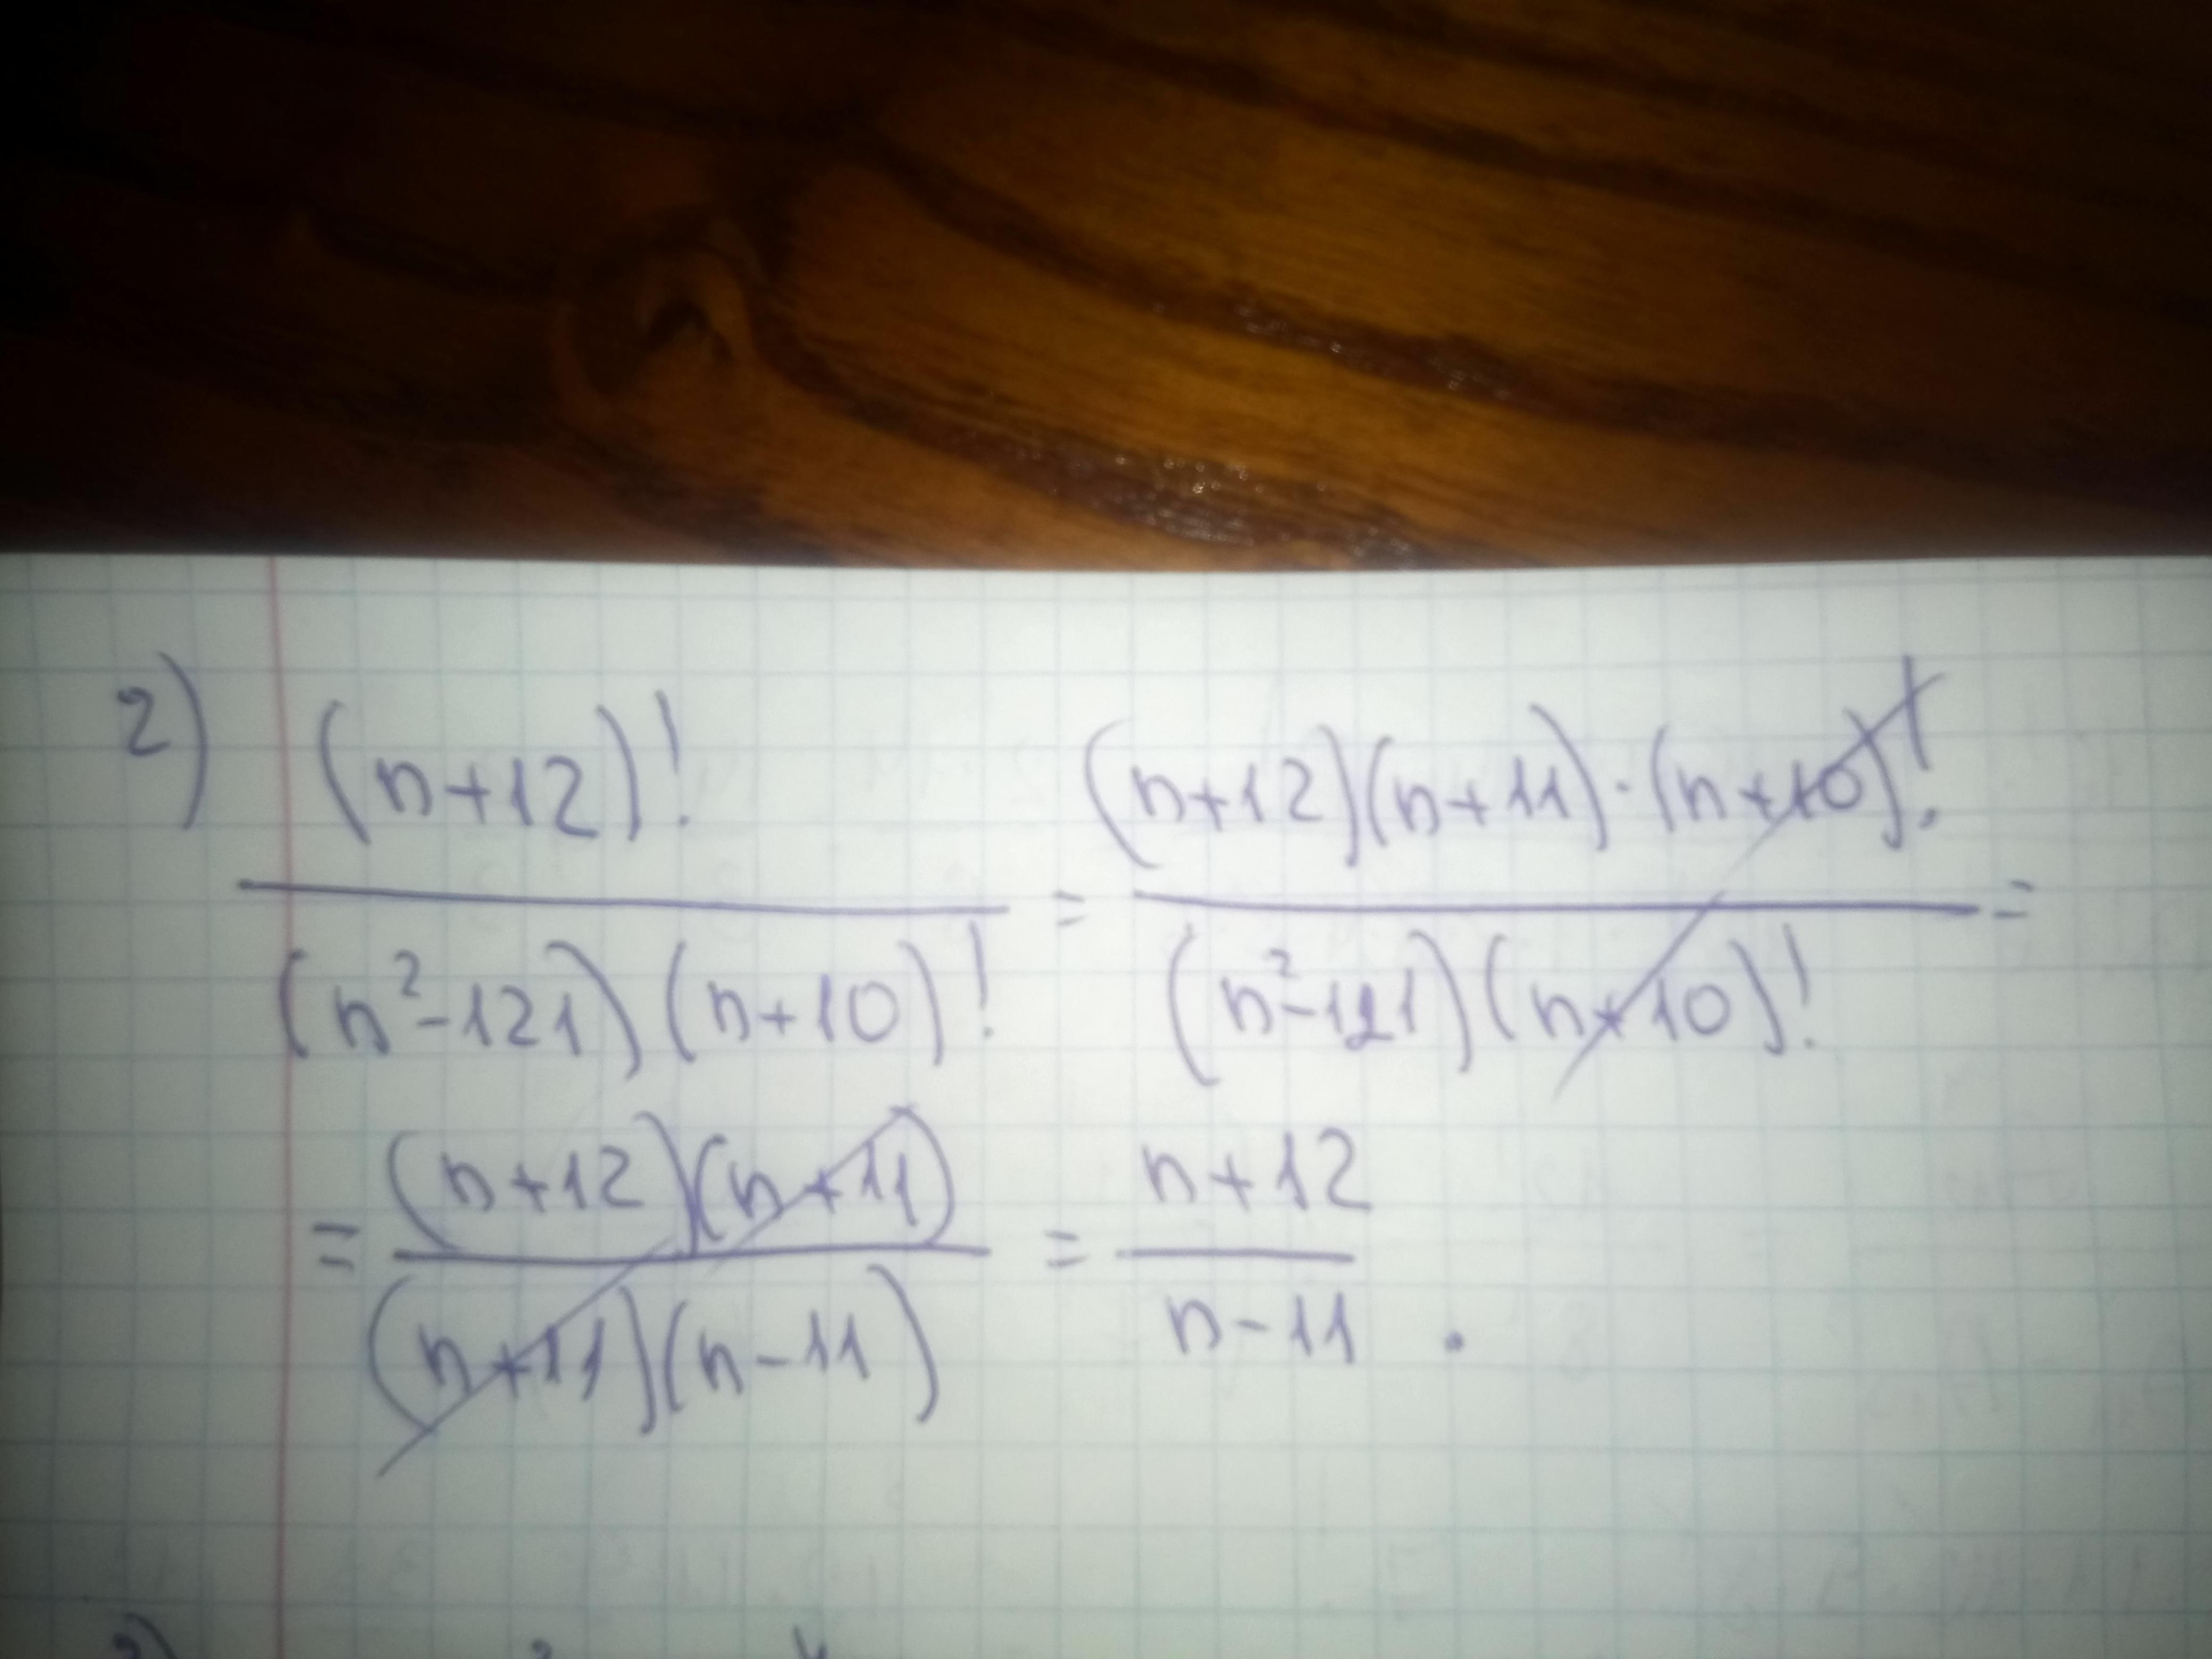 2) (n+12)! / (n²-121)(n+10)! = (n+12)(n+11)·(n+10)! / (n²-121)(n+10)! =
= (n+12)(n+11) / (n+11)(n-11) = n+12 / n-11 .